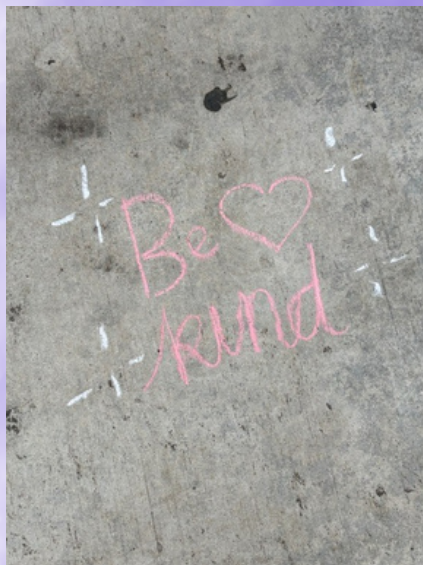 Be
kind